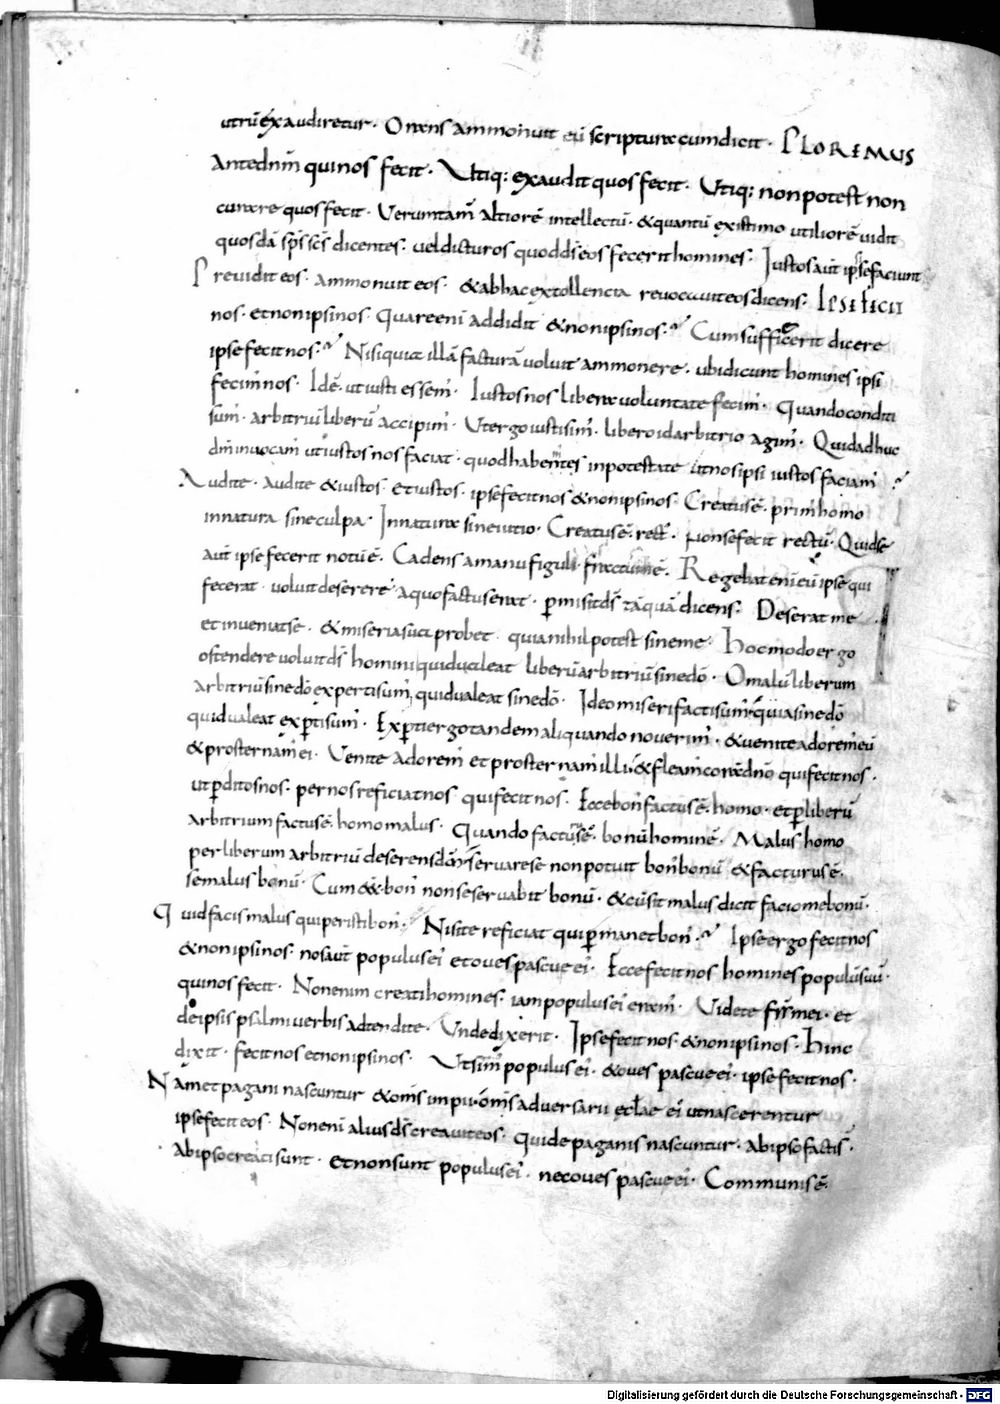 utrū exaudiretur. Orans ammonuit eū scriptura cum dicit. PLOREMUS
Ante dnm̄ qui nos fecit. Utiq; exaudit quos fecit. Utiq; non potest non
curare quos fecit. Verumtam̄ altiorē intellectū. & quantū existimo utiliorē uidit
quosdā sp̄s sc̄s dicentes. uel dicturos quod ds̄ eos fecerit homines. Iustos aut̄ ipsi se faciunt
Preuidit eos. ammonuit eos. & ab hac extollencia reuocauit eos dicens. IPSE FECIT
nos. et non ipsi nos. Quare enī addidit & non ipsi nos. Cum sufficerit dicere
ipse fecit nos. Nisi quia illā facturā uoluit ammonere. ubi dicunt homines ipsi
fecim̄ nos. Idē. ut iusti essem̄. Iustos nos libera uoluntate fecim̄. Quando conditi
sum̄. arbitriū liberū accipim̄. Ut ergo iusti sim̄. libero id arbitrio agim̄. Quid adhuc
dm̄ inuocam̄ ut iustos nos faciat. quod habentes in potestate ut nos ipsi iustos faciam̄
Audite. Audite & iustos. et iustos. ipse fecit nos & non ipsi nos. Creatus ē. prim̄ homo
in natura sine culpa. In natura sine uitio. Creatus ē. rect̄. Non se fecit rectū. Quid se
aut̄ ipse fecerit notū ē. Cadens a manu figuli fractus ē. Regebat enī eū ipse qui
fecerat. uoluit deserere a quo factus erat. permisit ds̄ tāquā dicens. Deserat me
et inueniat se. & miseria sua probet. quia nihil potest sine me. Hoc modo ergo
ostendere uoluit ds̄ homini quid ualeat liberū arbitriū sine dō. O malū liberum
arbitriū sine dō experti sum̄, quid ualeat sine dō. Ideo miseri facti sum̄. quia sine dō
quid ualeat experti sum̄. Experti ergo tandem aliquando nouerim̄. & uenite adorem̄ eū
& prosternam̄ ei. Venite adorem̄ et prosternam̄ illi. & fleam̄ corā dnō qui fecit nos.
ut perditos nos. per nos reficiat nos qui fecit nos. Ecce bon̄ factus ē. homo. et per liberū
arbitrium factus ē. homo malus. Quando factus ē. bonū hominē. Malus homo
per liberum arbitriū deserens dm̄. seruare se non potuit bon̄ bonū & facturus ē.
se malus bonū. Cum eēt bon̄ non se seruabit bonū. & cū sit malus dicit facio me bonū.
Quid facis malus qui peristi bon̄. Nisi te reficiat qui permanet bon̄. Ipse ergo fecit nos
& non ipsi nos. nos aut̄ populus ei et oues pascue ei. Ecce fecit nos homines populū suū.
qui nos fecit. Non enim creati homines. iam populus ei eram̄. Videte frs̄ mei. et
de ipsis psalmi uerbis adtendite. Unde dixerit. Ipse fecit nos. & non ipsi nos. Hinc
dixit. fecit nos et non ipsi nos. Ut sim̄ populus ei. & oues pascue ei. ipse fecit nos.
Nam et pagani nascuntur & om̄s impii. om̄s aduersarii eclae ei ut nascerentur
ipse fecit eos. Non enī alius ds̄ creauit eos. Qui de paganis nascuntur. ab ipso facti s̄.
Ab ipso creati sunt. et non sunt populus ei. nec oues pascue ei. Commune ē.